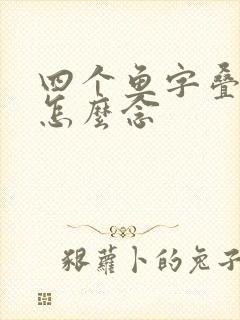 四个鱼字叠
怎麽念
狠萝卜的兔子